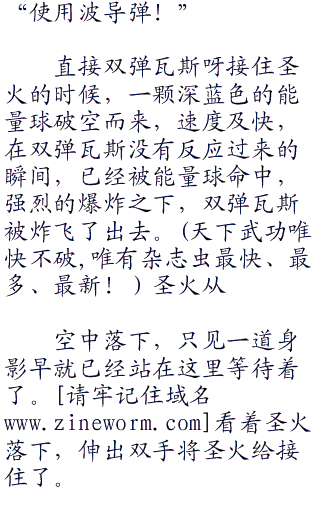 “使用波导弹！”
直接双弹瓦斯呀接住圣
火的时候，一颗深蓝色的能
量球破空而来，速度及快，
在双弹瓦斯没有反应过来的
瞬间，已经被能量球命中，
强烈的爆炸之下，双弹瓦斯
被炸飞了出去。(天下武功唯
快不破,唯有杂志虫最快、最
多、最新！)圣火从
空中落下，只见一道身
影早就已经站在这里等待着
了。[请牢记住域名
www.zineworm.com]看着圣火
落下，伸出双手将圣火给接
住了。